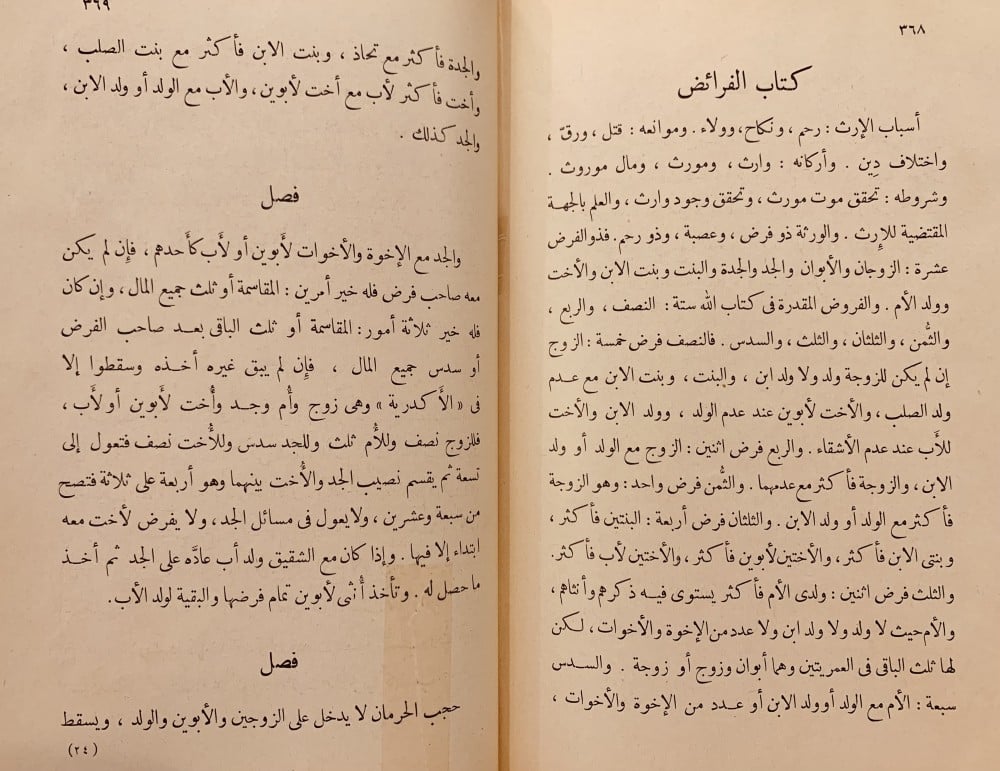 ٣٦٨
كتاب الفرائض
أسباب الإرث : رحم ، ونكاح، وولاء . وموانعه : قتل ، ورقّ ،
واختلاف دِين . وأركانه : وارث ، ومورث ، ومال موروث .
وشروطه : تحقق موت مورث ، وتحقق وجود وارث ، والعلم بالجهة
المقتضية للإرث . والورثة ذو فرض ، وعصبة ، وذو رحم. فذو الفرض
عشرة : الزوجان والأبوان والجد والجدة والبنت وبنت الابن والأخت
وولد الأم . والفروض المقدرة فى كتاب الله ستة : النصف ، والربع ،
والثُمن ، والثلثان ، والثلث ، والسدس . فالنصف فرض خمسة : الزوج
إن لم يكن للزوجة ولد ولا ولد ابن ، والبنت ، وبنت الابن مع عدم
ولد الصلب ، والأخت لأبوين عند عدم الولد ، وولد الابن والأخت
للأب عند عدم الأشقاء . والربع فرض اثنين : الزوج مع الولد أو ولد
الابن ، والزوجة فأكثر مع عدمهما . والثُمن فرض واحد : وهو الزوجة
فأكثر مع الولد أو ولد الابن . والثلثان فرض أربعة : البنتين فأكثر ،
وبنتى الابن فأكثر ، والأختين لأبوين فأكثر ، والأختين لأب فأكثر.
والثلث فرض اثنين : ولدى الأم فأكثر يستوى فيه ذكرهم وأنثاهم ،
والأم حيث لا ولد ولا ولد ابن ولا عدد من الإخوة والأخوات ، لكن
لها ثلث الباقى فى العمريتين وهما أبوان وزوج أو زوجة . والسدس
سبعة : الأم مع الولد أو ولد الابن أو عدد من الإخوة والأخوات ،
٣٦٩
والجدة فأكثر مع تحاذ ، وبنت الابن فأكثر مع بنت الصلب ،
وأخت فأكثر لأب مع أخت لأبوين ، والأب مع الولد أو ولد الابن ،
والجد كذلك .
فصل
والجد مع الإخوة والأخوات لأبوين أو لأب كأحدهم ، فإن لم يكن
معه صاحب فرض فله خير أمرين : المقاسمة أو ثلث جميع المال ، وإن كان
فله خير ثلاثة أمور : المقاسمة أو ثلث الباقى بعد صاحب الفرض
أو سدس جميع المال ، فإن لم يبق غيره أخذه وسقطوا إلا
فى «الأكدرية» وهى زوج وأُم وجد وأُخت لأبوين أو لأب ،
فللزوج نصف وللأُم ثلث وللجد سدس وللأُخت نصف فتعول إلى
تسعة ثم يقسم نصيب الجد والأُخت بينهما وهو أربعة على ثلاثة فتصح
من سبعة وعشرين ، ولا يعول فى مسائل الجد ، ولا يفرض لأخت معه
ابتداء إلا فيها . وإذا كان مع الشقيق ولد أب عادّه على الجد ثم أخذ
ما حصل له . وتأخذ أُنثى لأبوين تمام فرضها والبقية لولد الأب.
فصل
حجب الحرمان لا يدخل على الزوجين والأبوين والولد ، ويسقط
(٢٤)